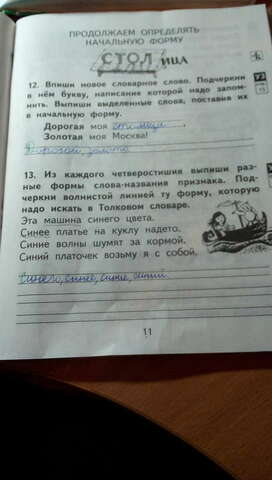 ПРОДОЛЖАЕМ ОПРЕДЕЛЯТЬ
НАЧАЛЬНУЮ ФОРМУ
СТОЛИЦА
12. Впиши новое словарное слово. Подчеркни
в нём букву, написание которой надо запом-
нить. Выпиши выделенные слова, поставив их
в начальную форму.
Дорогая моя столица,
Золотая моя Москва!
13. Из каждого четверостишия выпиши раз-
ные формы слова-названия признака. Под-
черкни волнистой линией ту форму, которую
надо искать в Толковом словаре.
Эта машина синего цвета.
Синее платье на куклу надето.
Синие волны шумят за кормой.
Синий платочек возьму я с собой.
Синего, синее, синие, синий
11